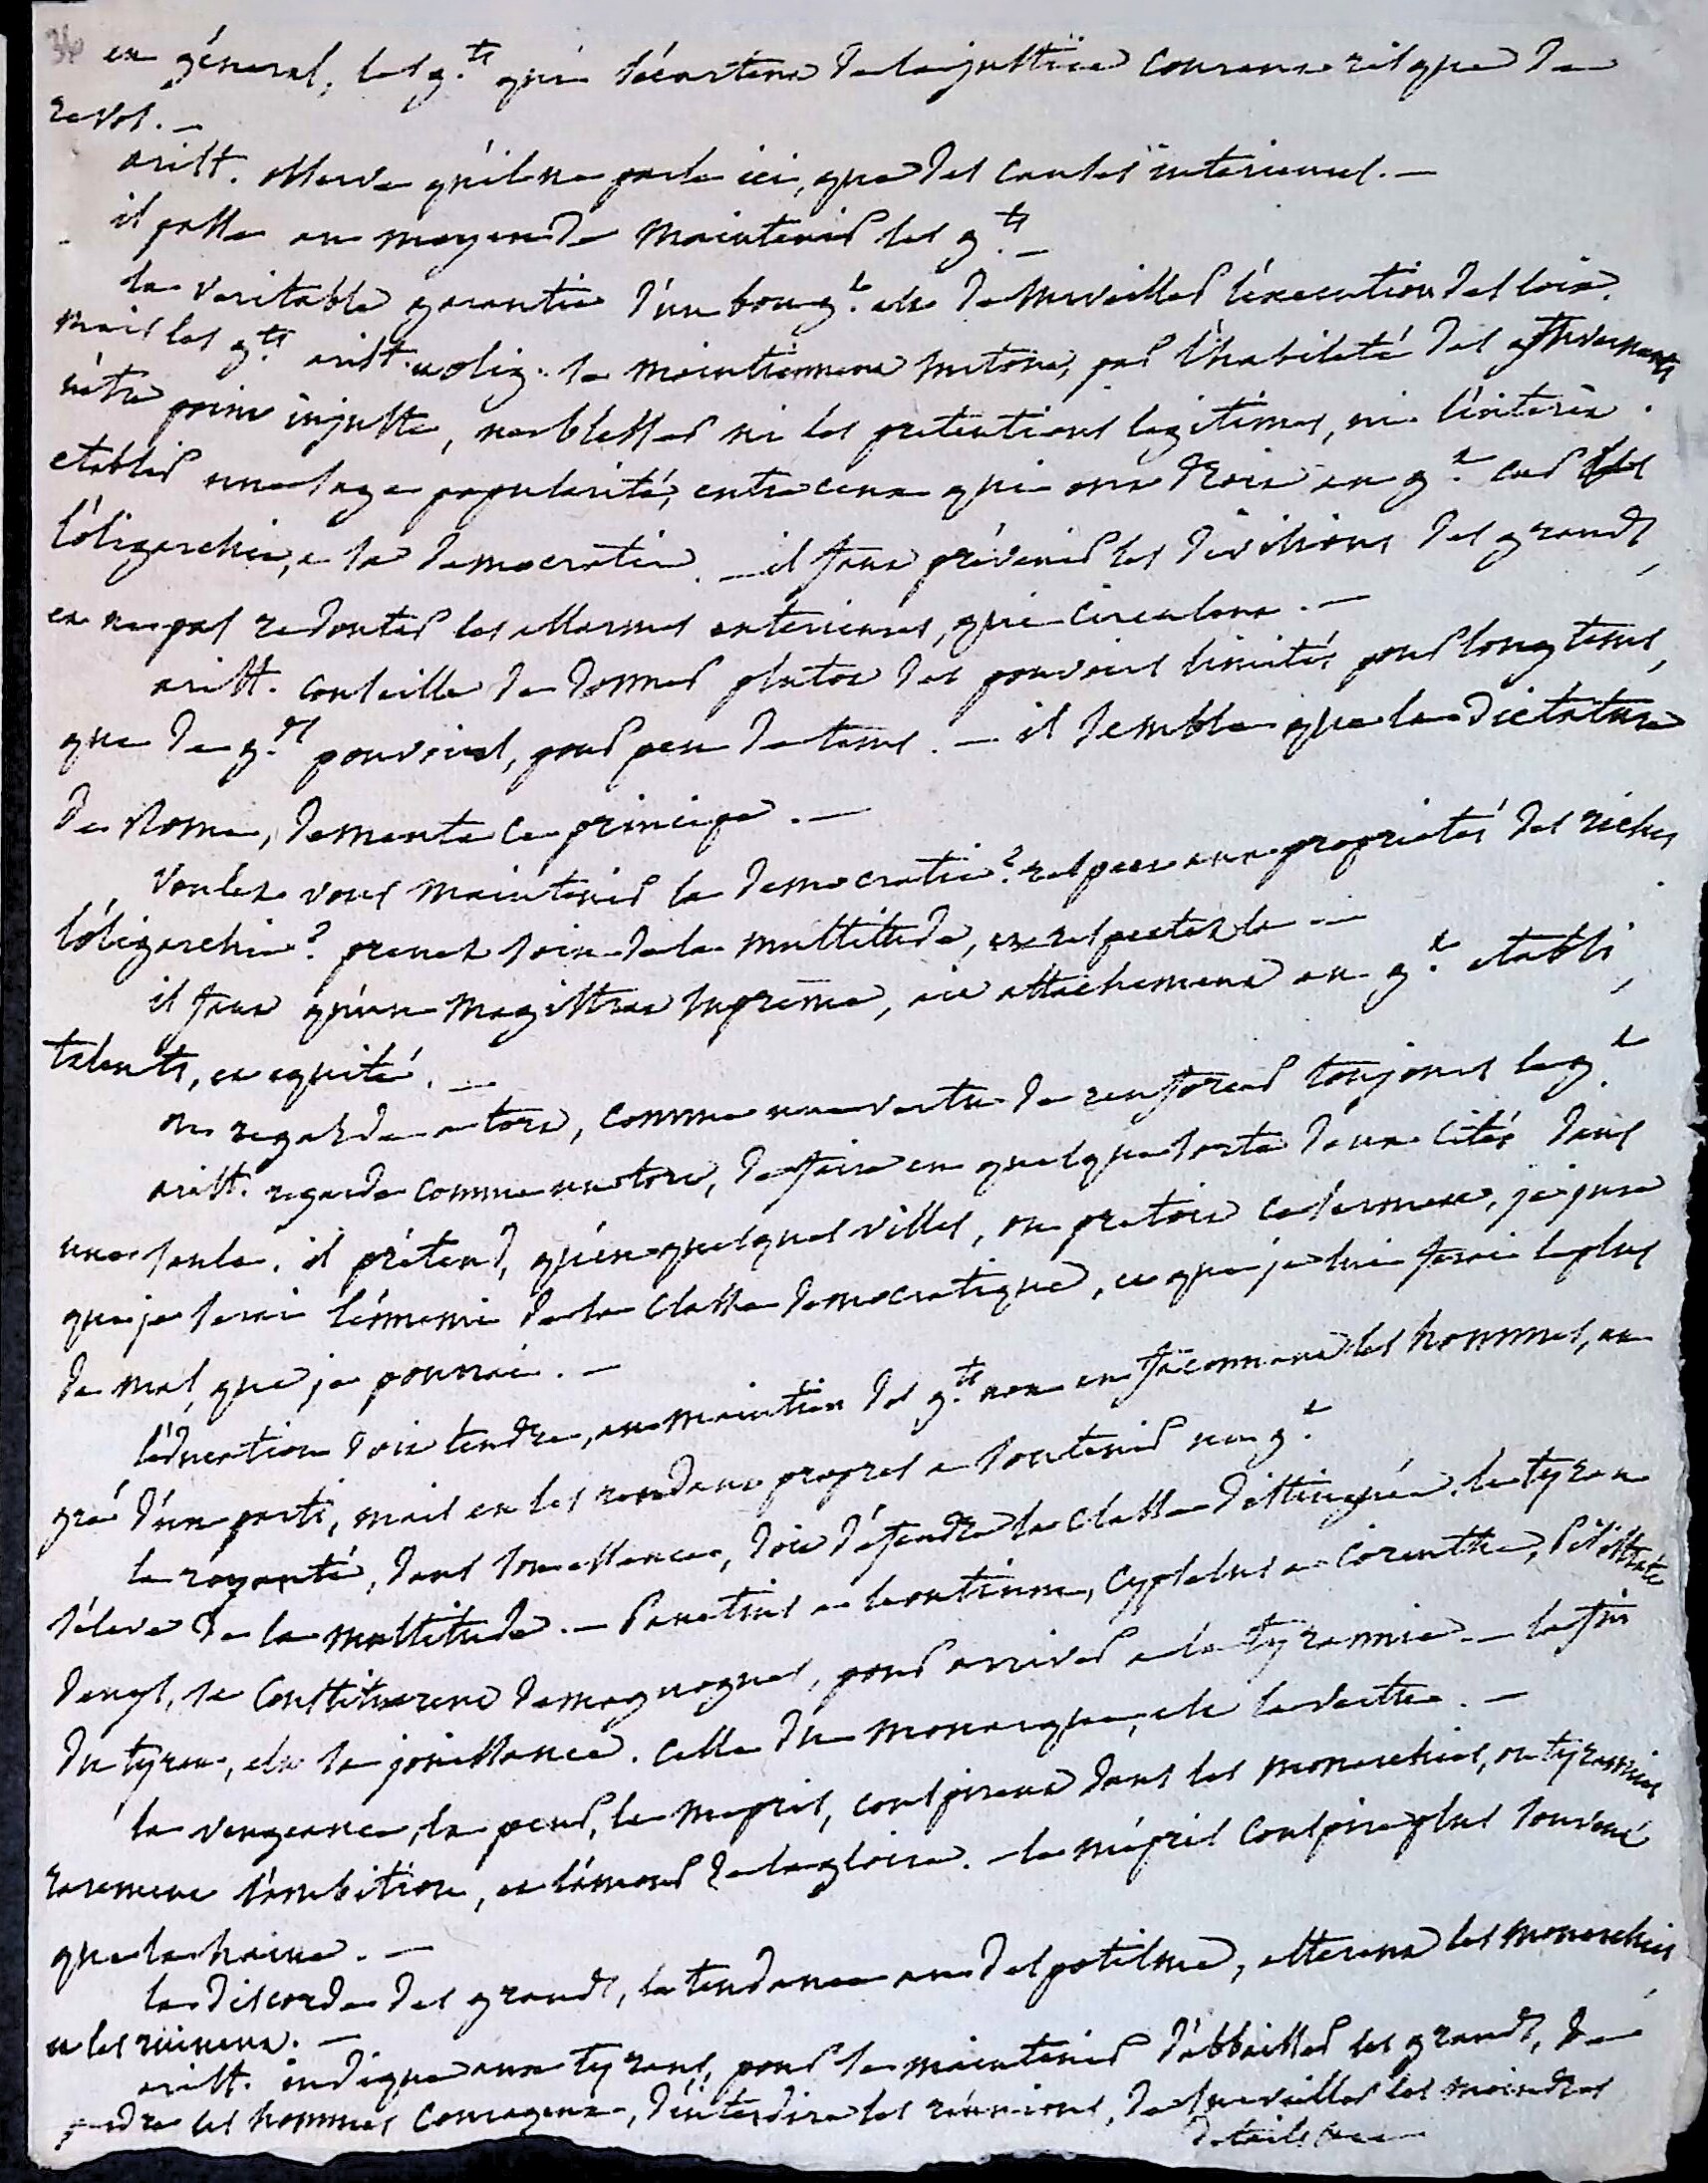 36 en général, les g.ts qui s'écartent de la justice courent risque de
revol. —
arist. observe qu'il ne parle ici, que des causes intérieures. —
il passe au moyen de maintenir les g.ts —
la veritable garantie d'un bon g.t est de surveiller l'execution des loix.
mais les g.ts arist. u olig. se maintiennent surtout, par l'habileté des gouvernants
n'être point injuste, ne blesser ni les pretentions legitimes, ni l'interêt.
etablir une sage popularité, entre ceux qui ont droit au g.t car
l'oligarchie, a sa democratie. — il faut prévenir les divisions des grands,
et ne pas redouter les allarmes exterieures, qui circulent. —
arist. conseille de donner plutot des pouvoirs limités pour longtems,
que de g.ds pouvoirs, pour peu de tems. — il semble que la dictature
de Rome, demente ce principe. —
voulez vous maintenir la democratie? respect aux propriétés des riches
l'oligarchie? prenez soin de la multitude, et respectez la —
il faut qu'un magistrat suprême, ait attachement au g.t établi,
talents, et equité. —
on regarde a tort, comme une vertu de renforcer toujours le g.t
arist. regarde comme un tort, de faire en quelque sorte deux cités dans
une seule. il prétend, qu'en quelques villes, on pretoit ce serment, je jure
que je serai l'ennemi de la classe democratique, et que je lui ferai le plus
de mal, que je pourrai. —
l'éducation doit tendre, au maintien des g.ts non en façonnant les hommes, au
gré d'un parti, mais en les rendant propres a soutenir un g.t
la royauté, dans son essence, doit défendre la classe distinguée. le tyran
s'éleve de la multitude. — Panetius a Leontium, Cypselus a Corinthe, Pisistrate
Denys, se constituerent demagogues, pour arriver a la tyrannie — la fin
du tyran, est sa jouissance. celle du monarque, est la vertu. —
la vengeance, la peur, le mepris, conspirent dans les monarchies, ou tyrannies
rarement l'ambition, et l'amour de la gloire. — le mépris conspire plus souvent
que la haine. —
la discorde des grands, la tendance au despotisme, alterent les monarchies
u les ruinent. —
arist. indique aux tyrans, pour se maintenir d'abbaisser les grands, de
perdre les hommes courageux, d'interdire les réunions, de surveiller les moindres
details